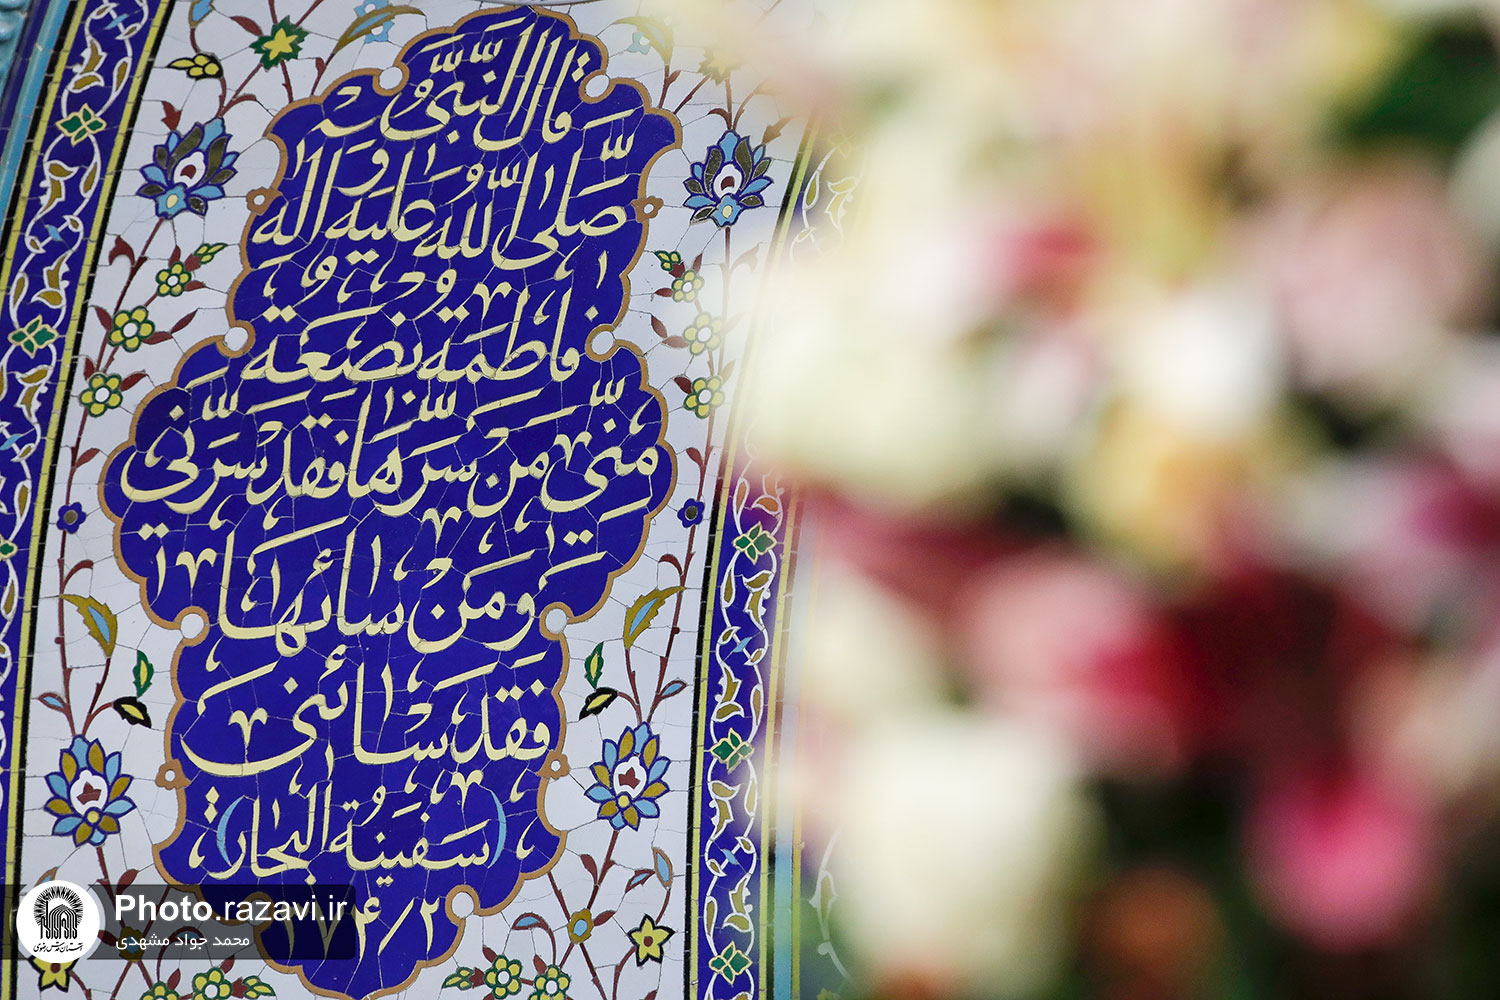 قَالَ النَّبِیُّ
صَلَّی اللّٰهُ عَلَیْهِ وَ اٰلِهِ
فَاطِمَةُ بَضْعَةٌ
مِنِّی مَنْ سَرَّهَا فَقَدْ سَرَّنِی
وَ مَنْ سَائَهَا
فَقَدْ سَائَنِی
(سَفِینَةُ الْبِحَارِ)
Photo.razavi.ir
محمد جواد مشهدی